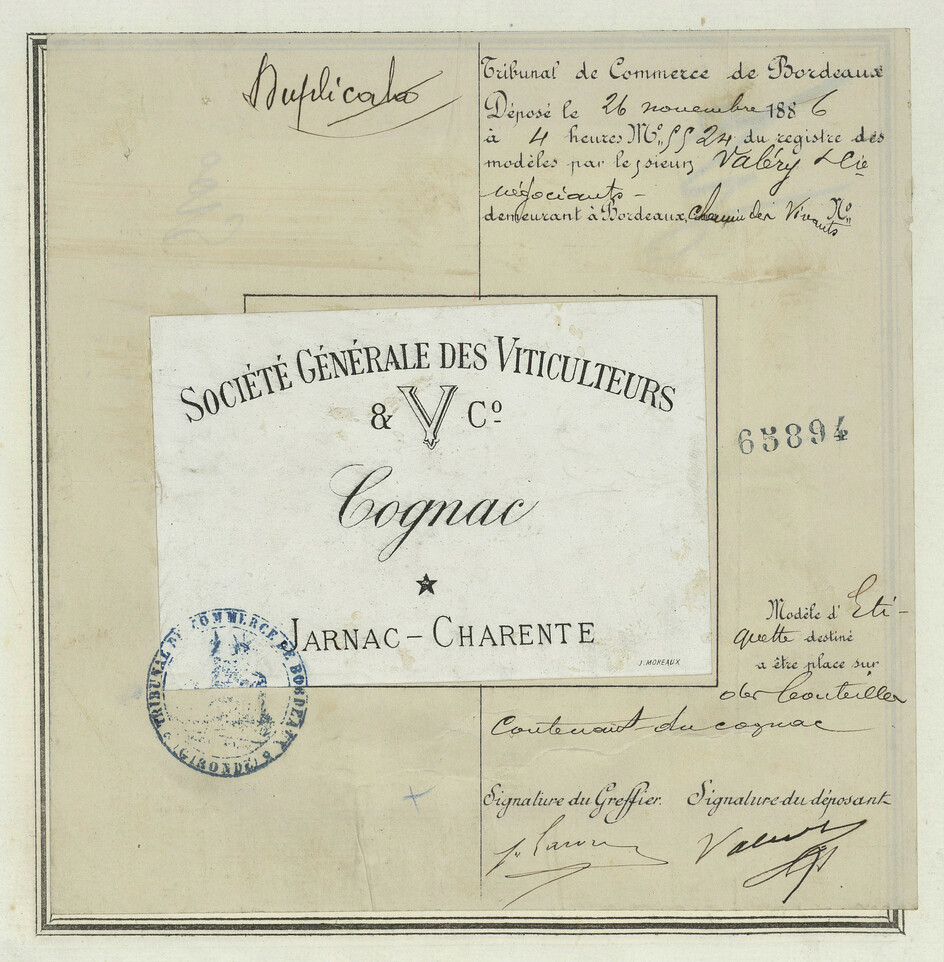 Duplicata
Tribunal de Commerce de Bordeaux
Déposé le 26 novembre 1886
à 4 heures M. SS 24 du registre des
modèles par le sieurs Valéry & Cie
négociants -
demeurant à Bordeaux, chemin des Vivants No
SOCIÉTÉ GÉNÉRALE DES VITICULTEURS
& V Co
Cognac
JARNAC - CHARENTE
J. MOREAUX
65894
TRIBUNAL DE COMMERCE DE BORDEAUX
(GIRONDE)
Modèle d'Eti-
quette destiné
a être place sur
des bouteilles
contenant du cognac
Signature du Greffier. Signature du déposant